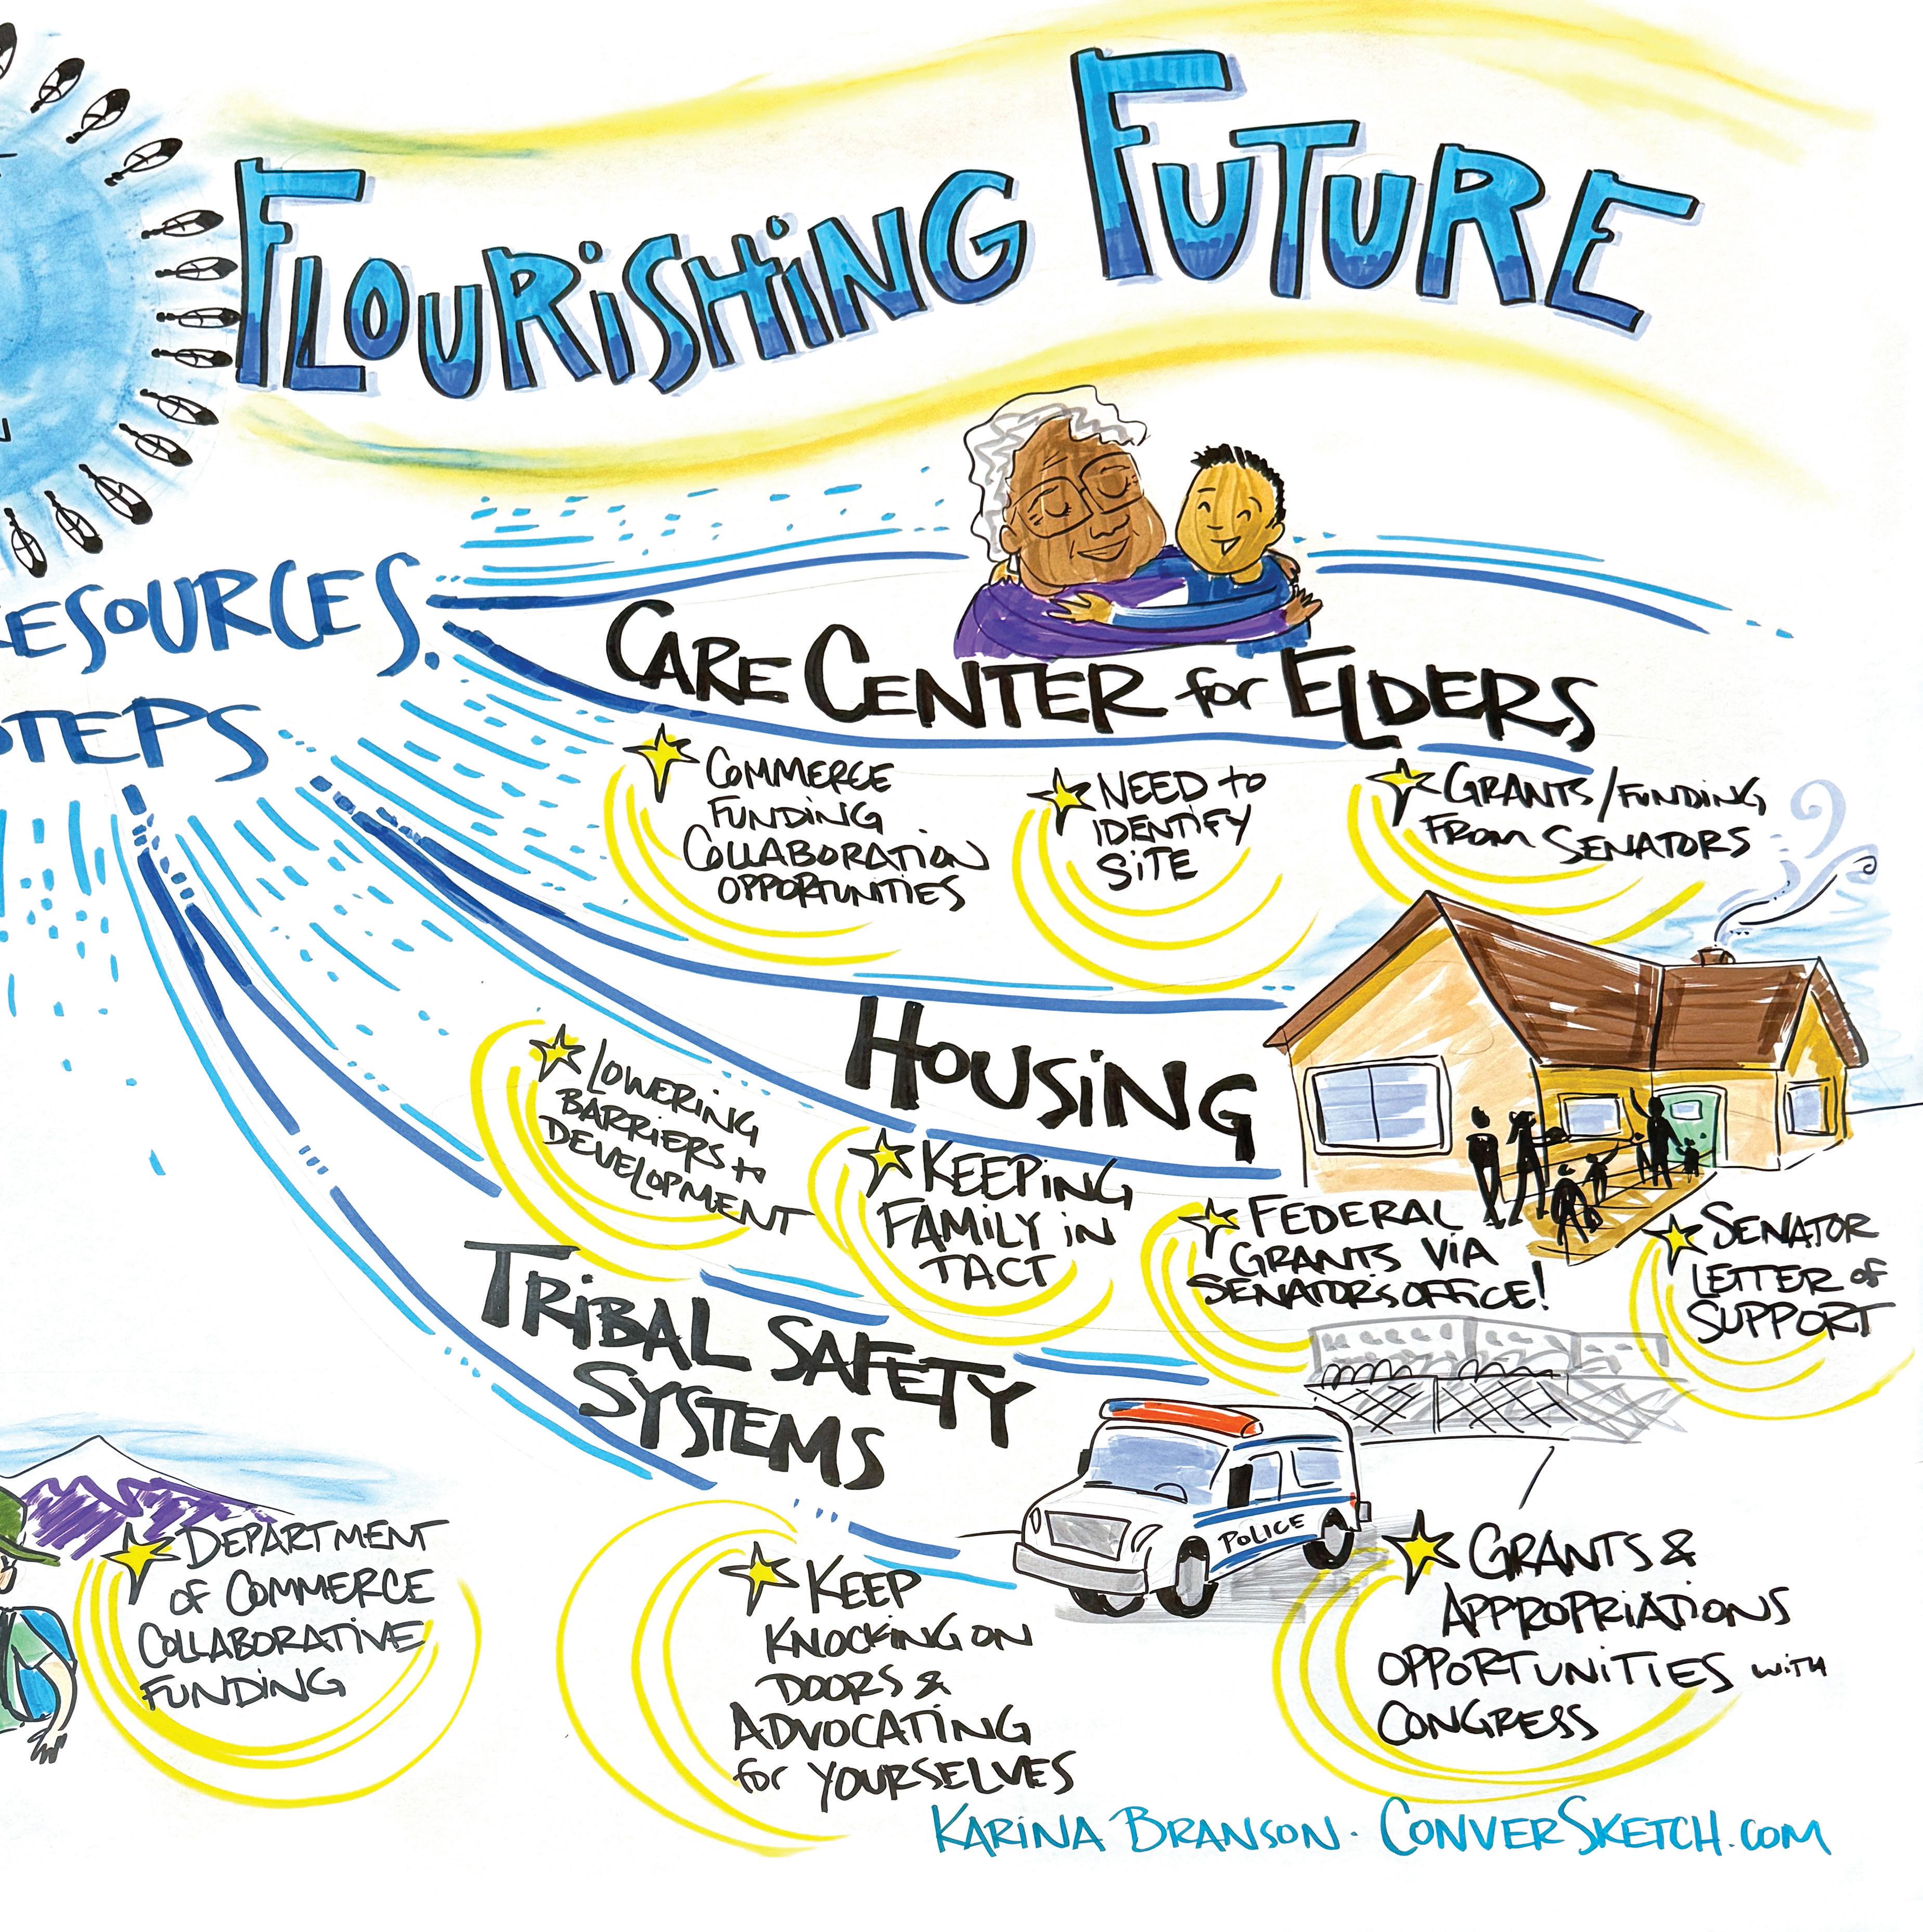 FLOURISHING FUTURE
RESOURCES.
STEPS
CARE CENTER for ELDERS
COMMERCE
FUNDING
COLLABORATION
OPPORTUNITIES
NEED to
IDENTIFY
SITE
GRANTS/FUNDING
FROM SENATORS
HOUSING
LOWERING
BARRIERS to
DEVELOPMENT
KEEPING
FAMILY IN
TACT
FEDERAL
GRANTS VIA
SENATOR'S OFFICE!
SENATOR
LETTER of
SUPPORT
TRIBAL SAFETY
SYSTEMS
POLICE
DEPARTMENT
OF COMMERCE
COLLABORATIVE
FUNDING
KEEP
KNOCKING ON
DOORS &
ADVOCATING
for YOURSELVES
GRANTS &
APPROPRIATIONS
OPPORTUNITIES WITH
CONGRESS
KARINA BRANSON · CONVERSKETCH.COM